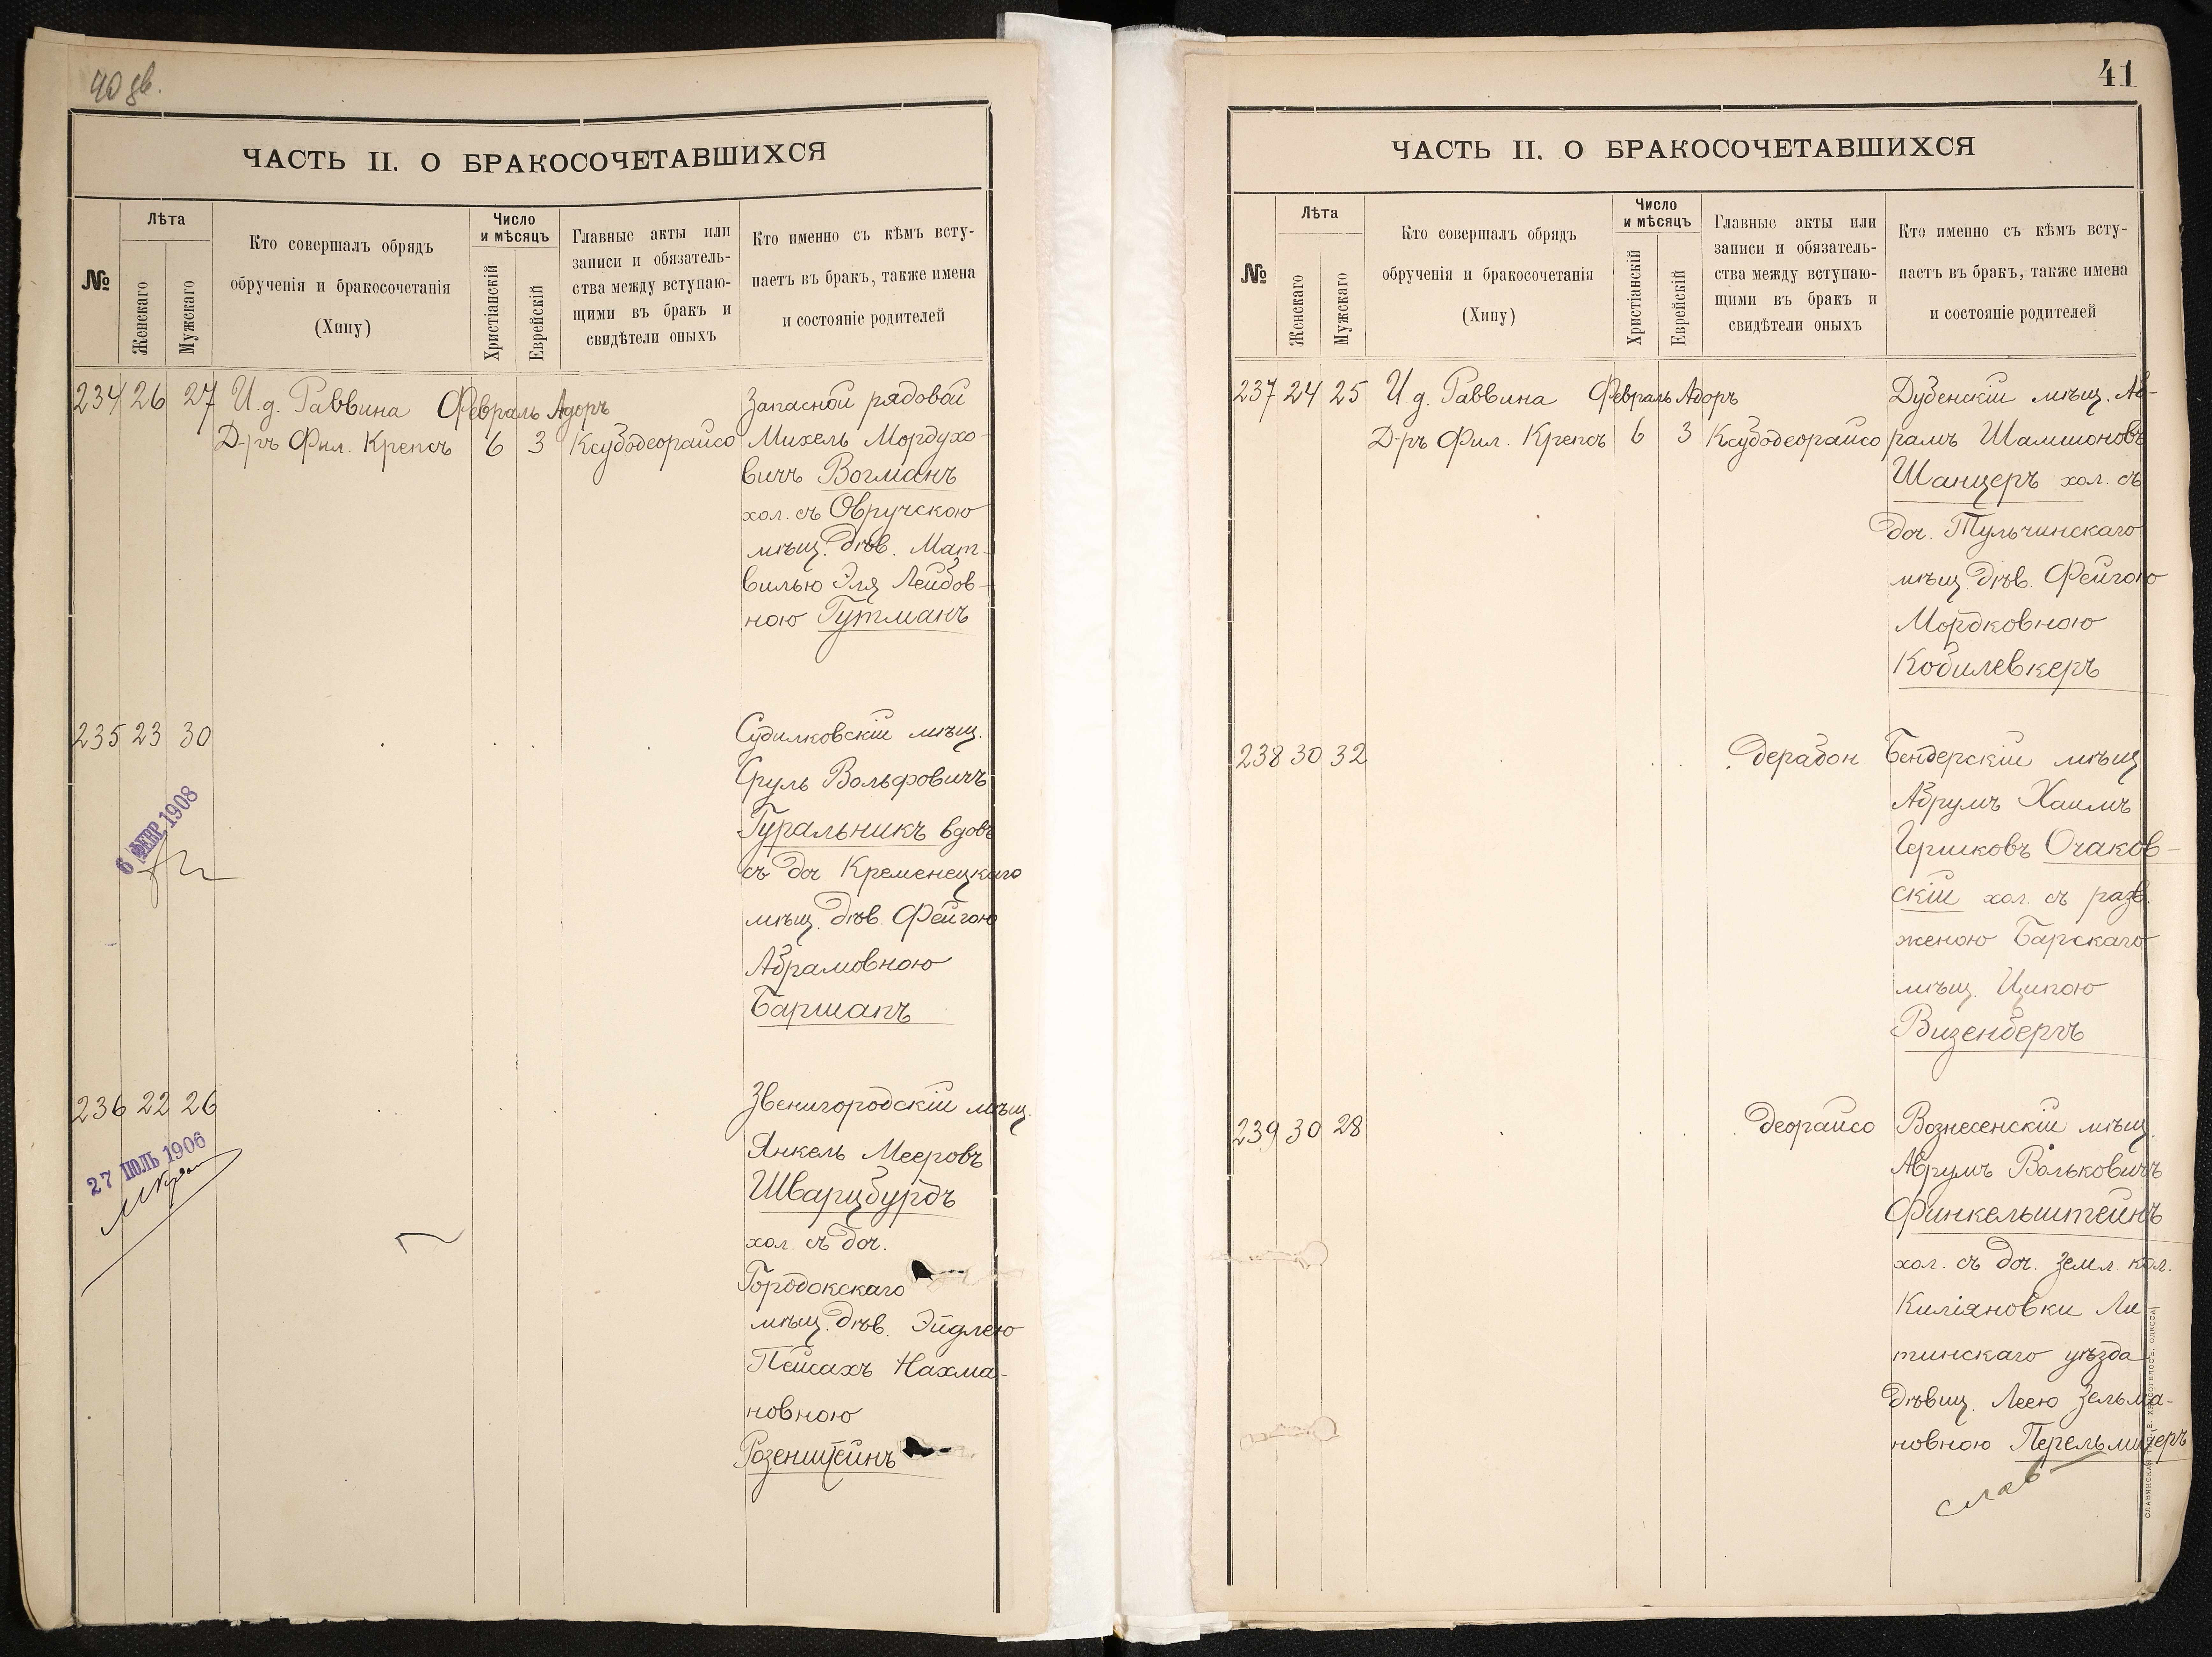 40 дв.
ЧАСТЬ II. О БРАКОСОЧЕТАВШИХСЯ
№
Лѣта
Женскаго
Мужскаго
Кто совершалъ обрядъ
обрученія и бракосочетанія
(Хипу)
Число
и мѣсяцъ
Христіанскій
Еврейскій
Главные акты или
записи и обязатель-
ства между вступаю-
щими въ бракъ и
свидѣтели оныхъ
Кто именно съ кѣмъ всту-
паетъ въ бракъ, также имена
и состояніе родителей
234 26 27 И. д. Раввина Февраль Адоръ Запасной рядовой
Д-ръ Фил. Крепсъ 6 3 Ксубодеорайсо Михель Мордухо-
вичъ Вогманъ
хол. съ Овручскою
мѣщ. дѣв. Мат-
вилью Эля Лейбов-
ною Гутманъ
235 23 30 Судилковскій мѣщ.
Сруль Вольфовичъ
Гуральникъ вдовъ
съ доч Кременецкаго
мѣщ. дѣв. Фейгою
Абрамовною
Баршакъ
6 ФЕВР 1908
236 22 26 Звенигородскій мѣщ.
Янкель Мееровъ
Шварцбурдъ
хол. съ доч.
Городокскаго
мѣщ. дѣв. Эйдлею
Пейсахъ Нахма-
новною
Розенштейнъ
27 ІЮЛЬ 1906
41
ЧАСТЬ II. О БРАКОСОЧЕТАВШИХСЯ
№
Лѣта
Женскаго
Мужскаго
Кто совершалъ обрядъ
обрученія и бракосочетанія
(Хипу)
Число
и мѣсяцъ
Христіанскій
Еврейскій
Главные акты или
записи и обязатель-
ства между вступаю-
щими въ бракъ и
свидѣтели оныхъ
Кто именно съ кѣмъ всту-
паетъ въ бракъ, также имена
и состояніе родителей
237 24 25 И. д. Раввина Февраль Адоръ Дубенскій мѣщ. Ав-
Д-ръ Фил. Крепсъ 6 3 Ксубодеорайсо рамъ Шамшоновъ
Шанцеръ хол. съ
доч. Тульчинскаго
мѣщ. дѣв. Фейгою
Мордковною
Кобилевкеръ
238 30 32 дерабон Бендерскій мѣщ
Абрумъ Хаимъ
Гершковъ Очаков-
скій хол. съ разв.
женою Барскаго
мѣщ. Ципою
Визенбергъ
239 30 28 деорайсо Вознесенскій мѣщ.
Аврумъ Вольковичъ
Финкельштейнъ
хол. съ доч. земл. кол.
Киліяновки Ли
тинскаго уѣзда
дѣвиц. Леею Зельма-
новною Перельмитеръ
слав